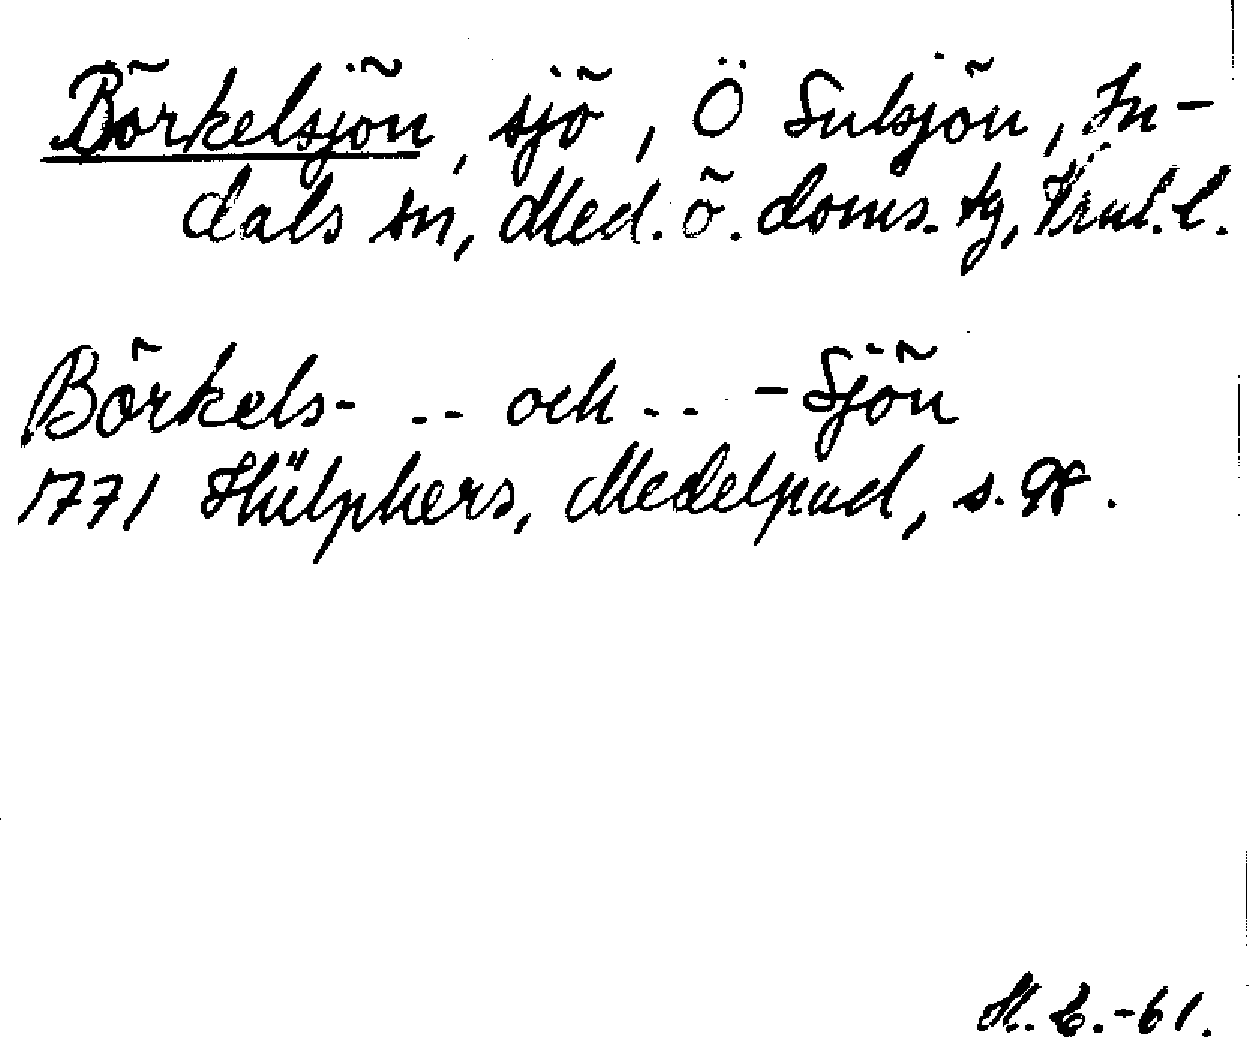 Börkelsjön, sjö, Ö Sulsjön, In-
dals sn, Med. ö. doms. tg, Vrnl. l.
Börkels- .. och .. -Sjön
1771 Hülphers, Medelpad, s. 98.
H. C.-61.